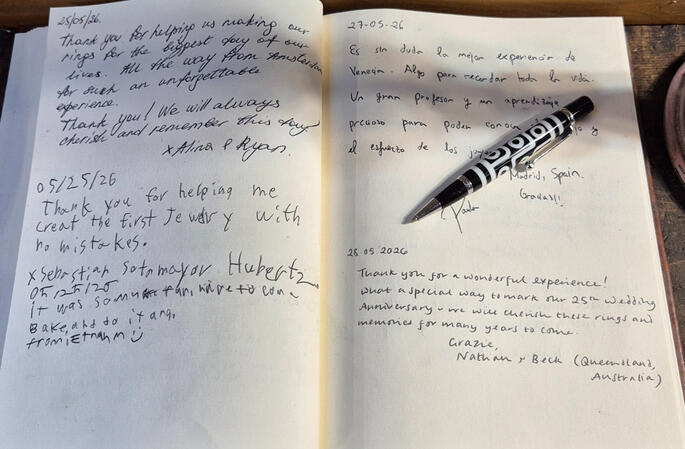 25/05/26.
Thank you for helping us making our
rings for the biggest day of our
lives. All the way from Amsterdam
for such an unforgettable
experience.
Thank you! We will always
cherish and remember this day
x Alina & Ryan.
05/25/26
Thank you for helping me
creat the first Jewelry with
no mistakes.
x Sebastian Sotomayor Hubertz
05/25/26
it was so
Bake, and do it
from: Ethan M :)
27-05-26
Es sin duda la mejor experiencia de
Venecia. Algo para recordar toda la vida.
Un gran profesor y un aprendizaje
precioso para poder y
el esfuerzo de los
Madrid, Spain.
Gracias!!
28.05.2026
Thank you for a wonderful experience!
What a special way to mark our 25th Wedding
Anniversary - we will cherish these rings and
memories for many years to come.
Grazie,
Nathan & Beck (Queensland,
Australia)